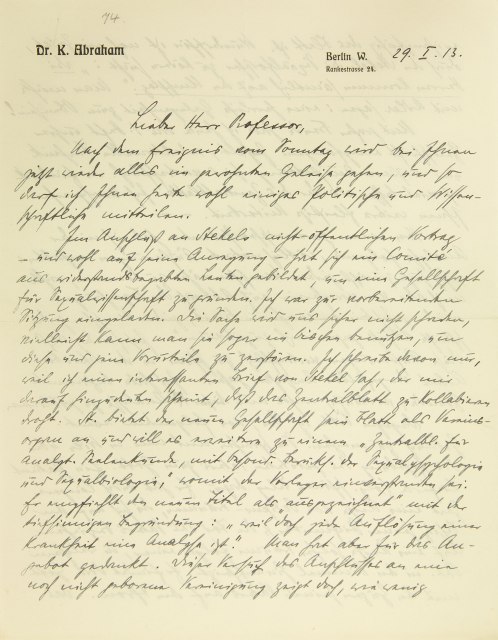 74
Dr. K. Abraham
Berlin W. 29. I. 13.
Rankestrasse 24.
Lieber Herr Professor,
Nach dem Ereignis vom Sonntag wird bei Ihnen
jetzt wieder alles im gewohnten Geleise gehen, und so
darf ich Ihnen heute wohl einiges Politische und Wissen-
schaftliche mitteilen.
Im Anschluß an Stekels nicht-öffentlichen Vortrag
– und wohl auf seine Anregung – hat sich ein Comité
aus widerstandsbegabten Leuten gebildet, um eine Gesellschaft
für Sexualwissenschaft zu gründen. Ich war zur vorbereitenden
Sitzung eingeladen. Die Sache wird uns sicher nicht schaden,
vielleicht kann man sie sogar ein bißchen benutzen, um
diese und jene Vorurteile zu zerstören. Ich schreibe davon nur,
weil ich einen interessanten Brief von Stekel sah, der mir
darauf hinzudeuten scheint, daß das Zentralblatt zu kollabieren
droht. St. bietet der neuen Gesellschaft sein Blatt als Vereins-
organ an und will es erweitern zu einem „Zentralbl. für
analyt. Seelenkunde, mit besond. Berücks. der Sexualpsychologie
und Sexualbiologie," womit der Verleger einverstanden sei.
Er empfiehlt den neuen Titel als „ausgezeichnet" mit der
tiefsinnigen Begründung: „weil doch jede Auflösung einer
Krankheit eine Analyse ist". Man hat aber für das An-
gebot gedankt. Dieser Versuch des Anschlusses an eine
noch nicht geborene Vereinigung zeigt doch, wie wenig